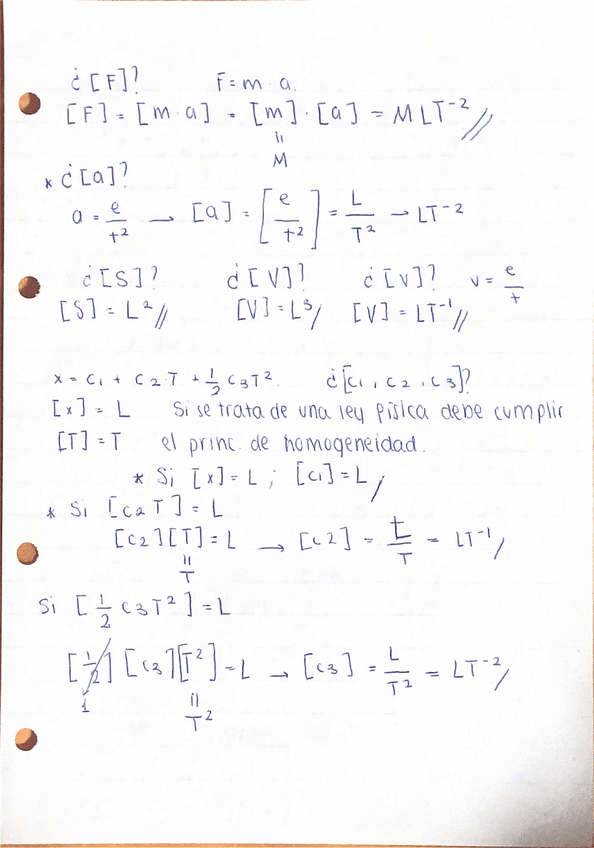 ¿[F]? F = m · a.
[F] = [m · a] = [m] · [a] = MLT⁻² //
=
M
* ¿[a]?
a = e/t² → [a] = [e/t²] = L/T² → LT⁻²
¿[S]? ¿[V]? ¿[v]? v = e/t
[S] = L² // [V] = L³ / [V] = LT⁻¹ //
x = C₁ + C₂ · T + 1/2 C₃T². ¿[C₁, C₂, C₃]?
[x] = L Si se trata de una ley física debe cumplir
[T] = T el princ. de homogeneidad.
* Si [x] = L ; [C₁] = L /
* Si [C₂ T] = L
[C₂][T] = L → [C₂] = L/T = LT⁻¹ /
=
T
Si [1/2 C₃T²] = L
[1/2] [C₃][T²] = L → [C₃] = L/T² = LT⁻² /
↓ =
1 T²